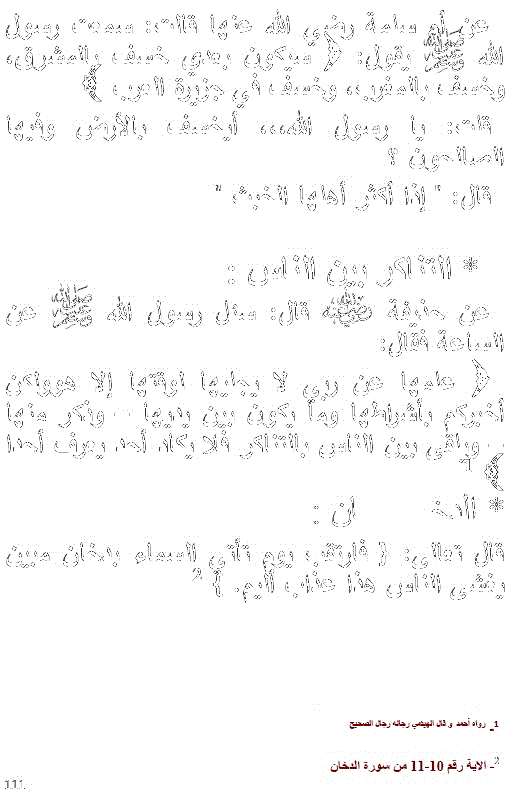 عن أم سلمة رضي الله عنها قالت: سمعت رسول
الله ﷺ يقول: ﴿ سيكون بعدي خسف بالمشرق،
وخسف بالمغرب، وخسف في جزيرة العرب ﴾
قلت: يا رسول الله،،، أيخسف بالأرض وفيها
الصالحون ؟
قال: " إذا أكثر أهلها الخبث "
* التناكر بين الناس :
عن حذيفة قال: سئل رسول الله ﷺ عن
الساعة فقال:
﴿ علمها عن ربي لا يجليها لوقتها إلا هوولكن
أخبركم بأشراطها وما يكون بين يديها – وذكر منها
– ويلقى بين الناس بالتناكر فلا يكاد أحد يعرف أحدا
﴾ 1
* الدخـــان :
قال تعالى: { فارتقب يوم تأتي السماء بدخان مبين
يغشى الناس هذا عذاب أليم. } 2
1- رواه أحمد و قال الهيثمي رجاله رجال الصحيح
2- الاية رقم 10-11 من سورة الدخان
111